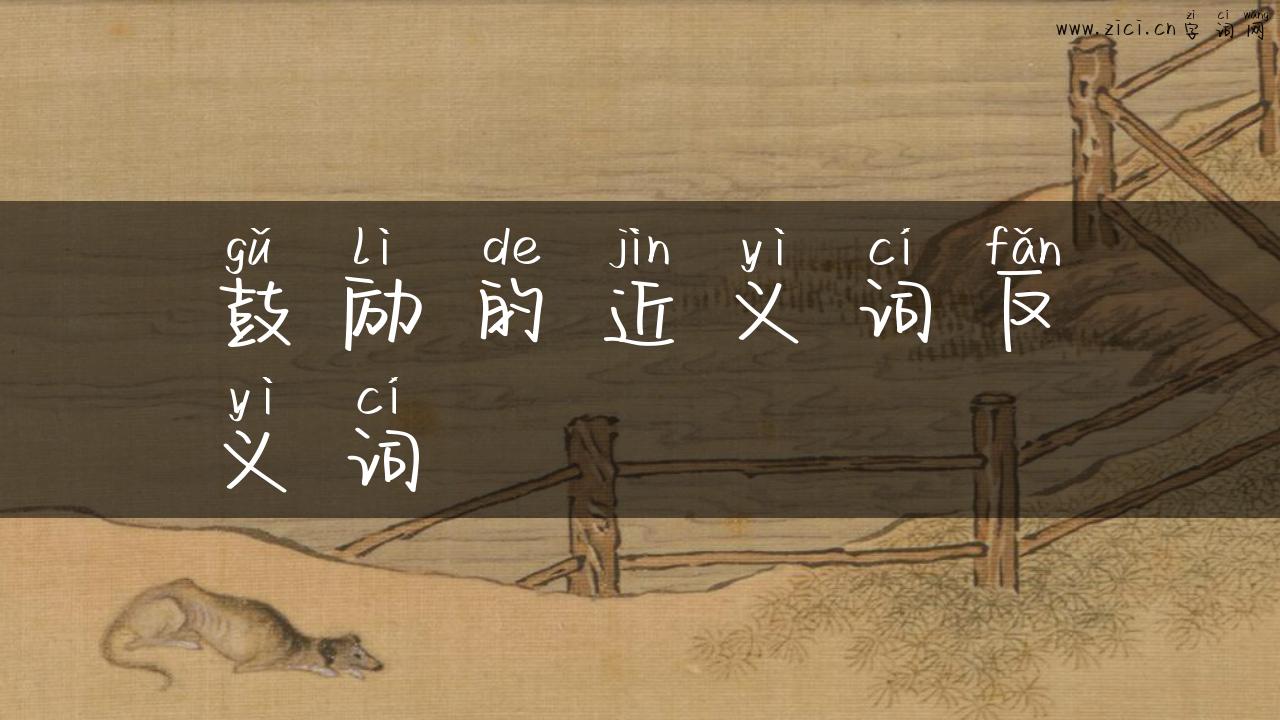 zi ci wang
www.zici.cn 字词网
gǔ lì de jìn yì cí fǎn
鼓励的近义词反
yì cí
义词